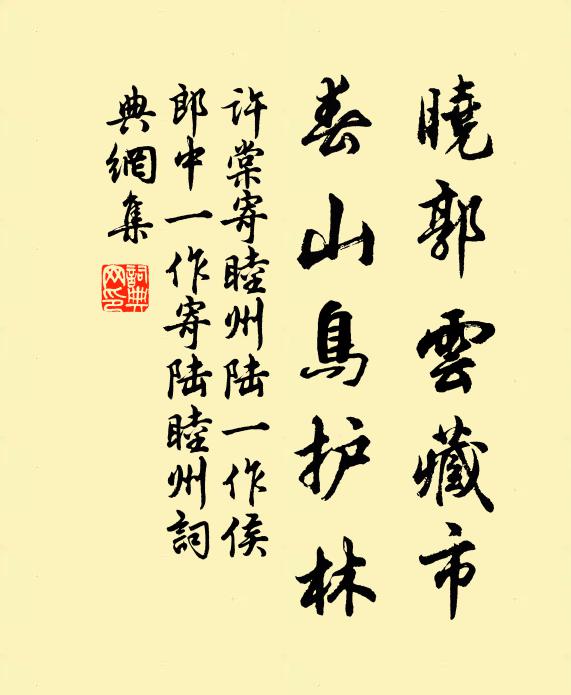 曉郭雲藏市
春山鳥护林
许棠寄睦州陆一作侯
郎中一作寄陆睦州詞
典網集
詞典網印